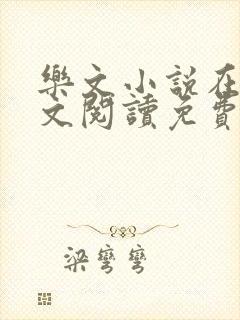 樂文小説在
文閱讀免費
梁彎彎